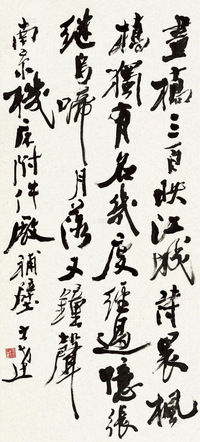 畫橋三百映江城詩裏楓
橋獨有名幾度經過憶張
繼烏啼月落又鐘聲
南京機床附件廠補壁